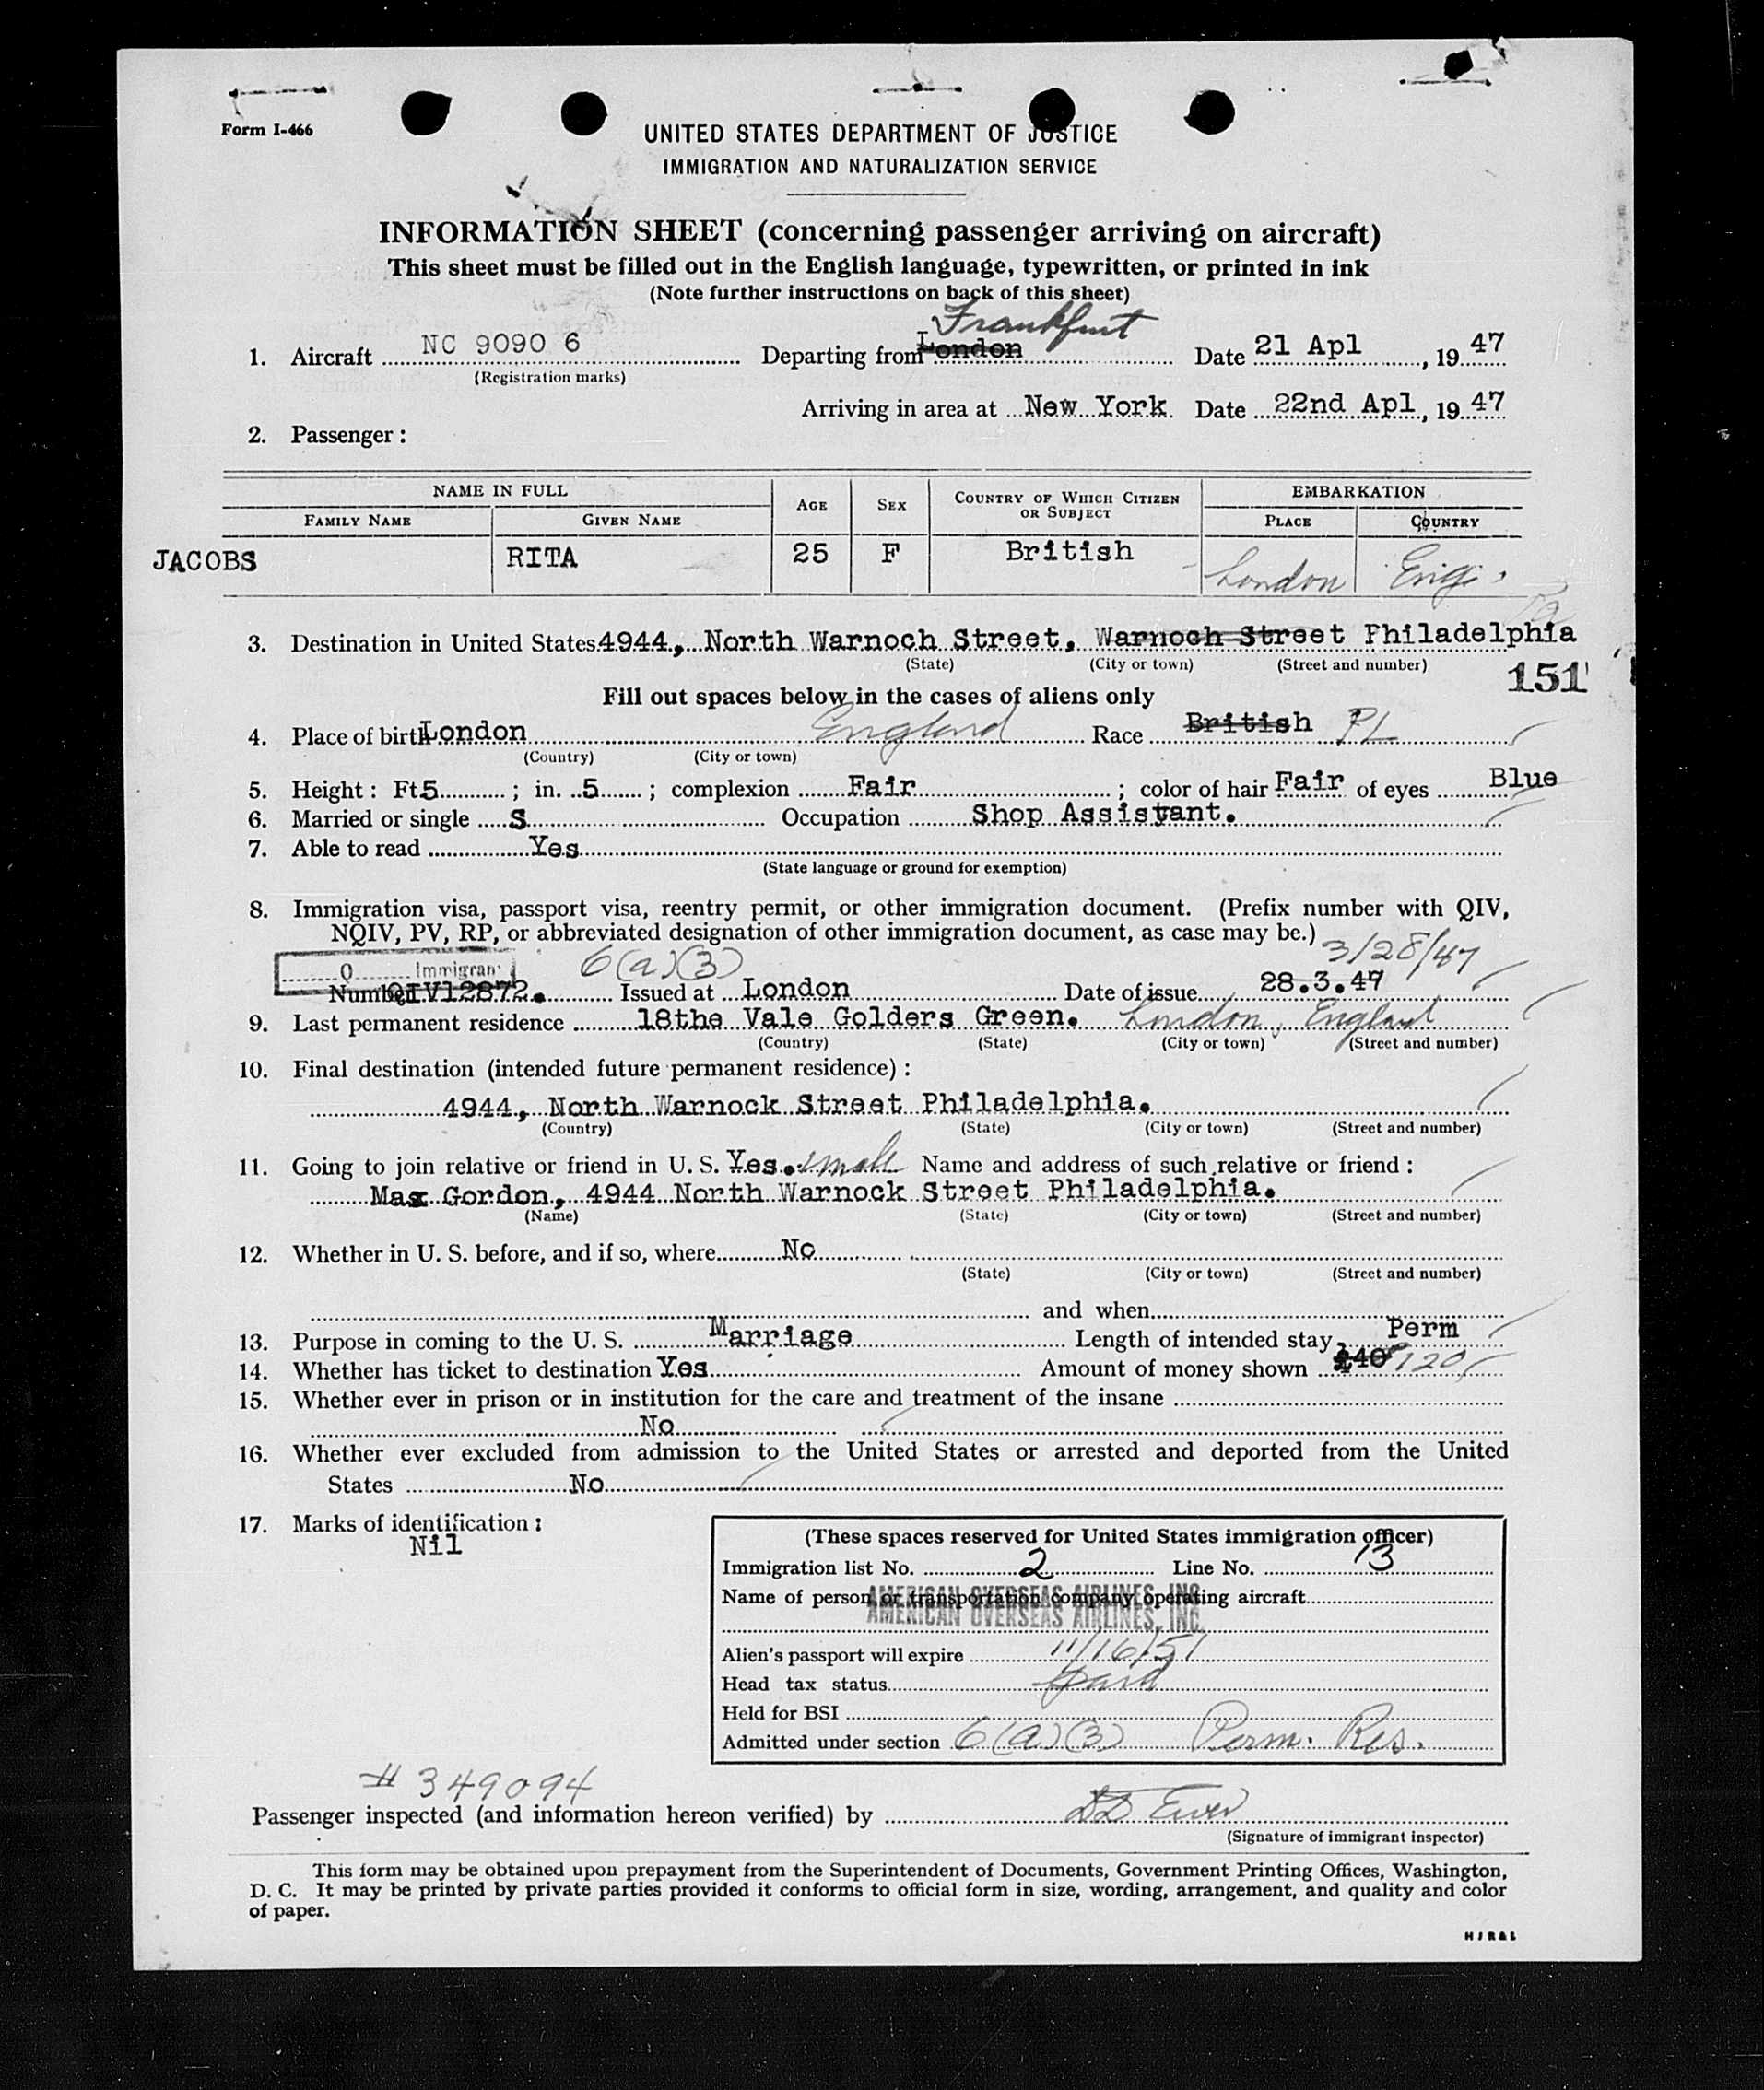 Form I-466
UNITED STATES DEPARTMENT OF JUSTICE
IMMIGRATION AND NATURALIZATION SERVICE
INFORMATION SHEET (concerning passenger arriving on aircraft)
This sheet must be filled out in the English language, typewritten, or printed in ink
(Note further instructions on back of this sheet)
Frankfurt
1. Aircraft NC 9090 6 Departing from London Date 21 Apl, 19 47
(Registration marks)
Arriving in area at New York Date 22nd Apl, 19 47
2. Passenger:
NAME IN FULL AGE SEX COUNTRY OF WHICH CITIZEN OR SUBJECT EMBARKATION
FAMILY NAME GIVEN NAME PLACE COUNTRY
JACOBS RITA 25 F British London Eng.
3. Destination in United States 4944, North Warnoch Street, Warnoch Street Philadelphia
(State) (City or town) (Street and number)
151
Fill out spaces below in the cases of aliens only
4. Place of birth London England Race British
(Country) (City or town)
5. Height: Ft 5; in. 5; complexion Fair; color of hair Fair of eyes Blue
6. Married or single S Occupation Shop Assistant.
7. Able to read Yes
(State language or ground for exemption)
8. Immigration visa, passport visa, reentry permit, or other immigration document. (Prefix number with QIV,
NQIV, PV, RP, or abbreviated designation of other immigration document, as case may be.)
Q Immigran 6(a)(3) 3/28/47
Number QIV12872. Issued at London Date of issue 28.3.47
9. Last permanent residence 18the Vale Golders Green. London, England
(Country) (State) (City or town) (Street and number)
10. Final destination (intended future permanent residence):
4944, North Warnock Street Philadelphia.
(Country) (State) (City or town) (Street and number)
11. Going to join relative or friend in U. S. Yes. Name and address of such relative or friend:
Max Gordon, 4944 North Warnock Street Philadelphia.
(Name) (State) (City or town) (Street and number)
12. Whether in U. S. before, and if so, where No
(State) (City or town) (Street and number)
and when
13. Purpose in coming to the U. S. Marriage Length of intended stay Perm
14. Whether has ticket to destination Yes Amount of money shown £40 120
15. Whether ever in prison or in institution for the care and treatment of the insane
No
16. Whether ever excluded from admission to the United States or arrested and deported from the United
States No
17. Marks of identification:
Nil
(These spaces reserved for United States immigration officer)
Immigration list No. 2 Line No. 13
Name of person or transportation company operating aircraft
AMERICAN OVERSEAS AIRLINES, INC.
AMERICAN OVERSEAS AIRLINES, INC.
Alien's passport will expire 11/16/51
Head tax status paid
Held for BSI
Admitted under section 6(a)(3) Perm. Res.
# 349094
Passenger inspected (and information hereon verified) by
(Signature of immigrant inspector)
This form may be obtained upon prepayment from the Superintendent of Documents, Government Printing Offices, Washington,
D. C. It may be printed by private parties provided it conforms to official form in size, wording, arrangement, and quality and color
of paper.